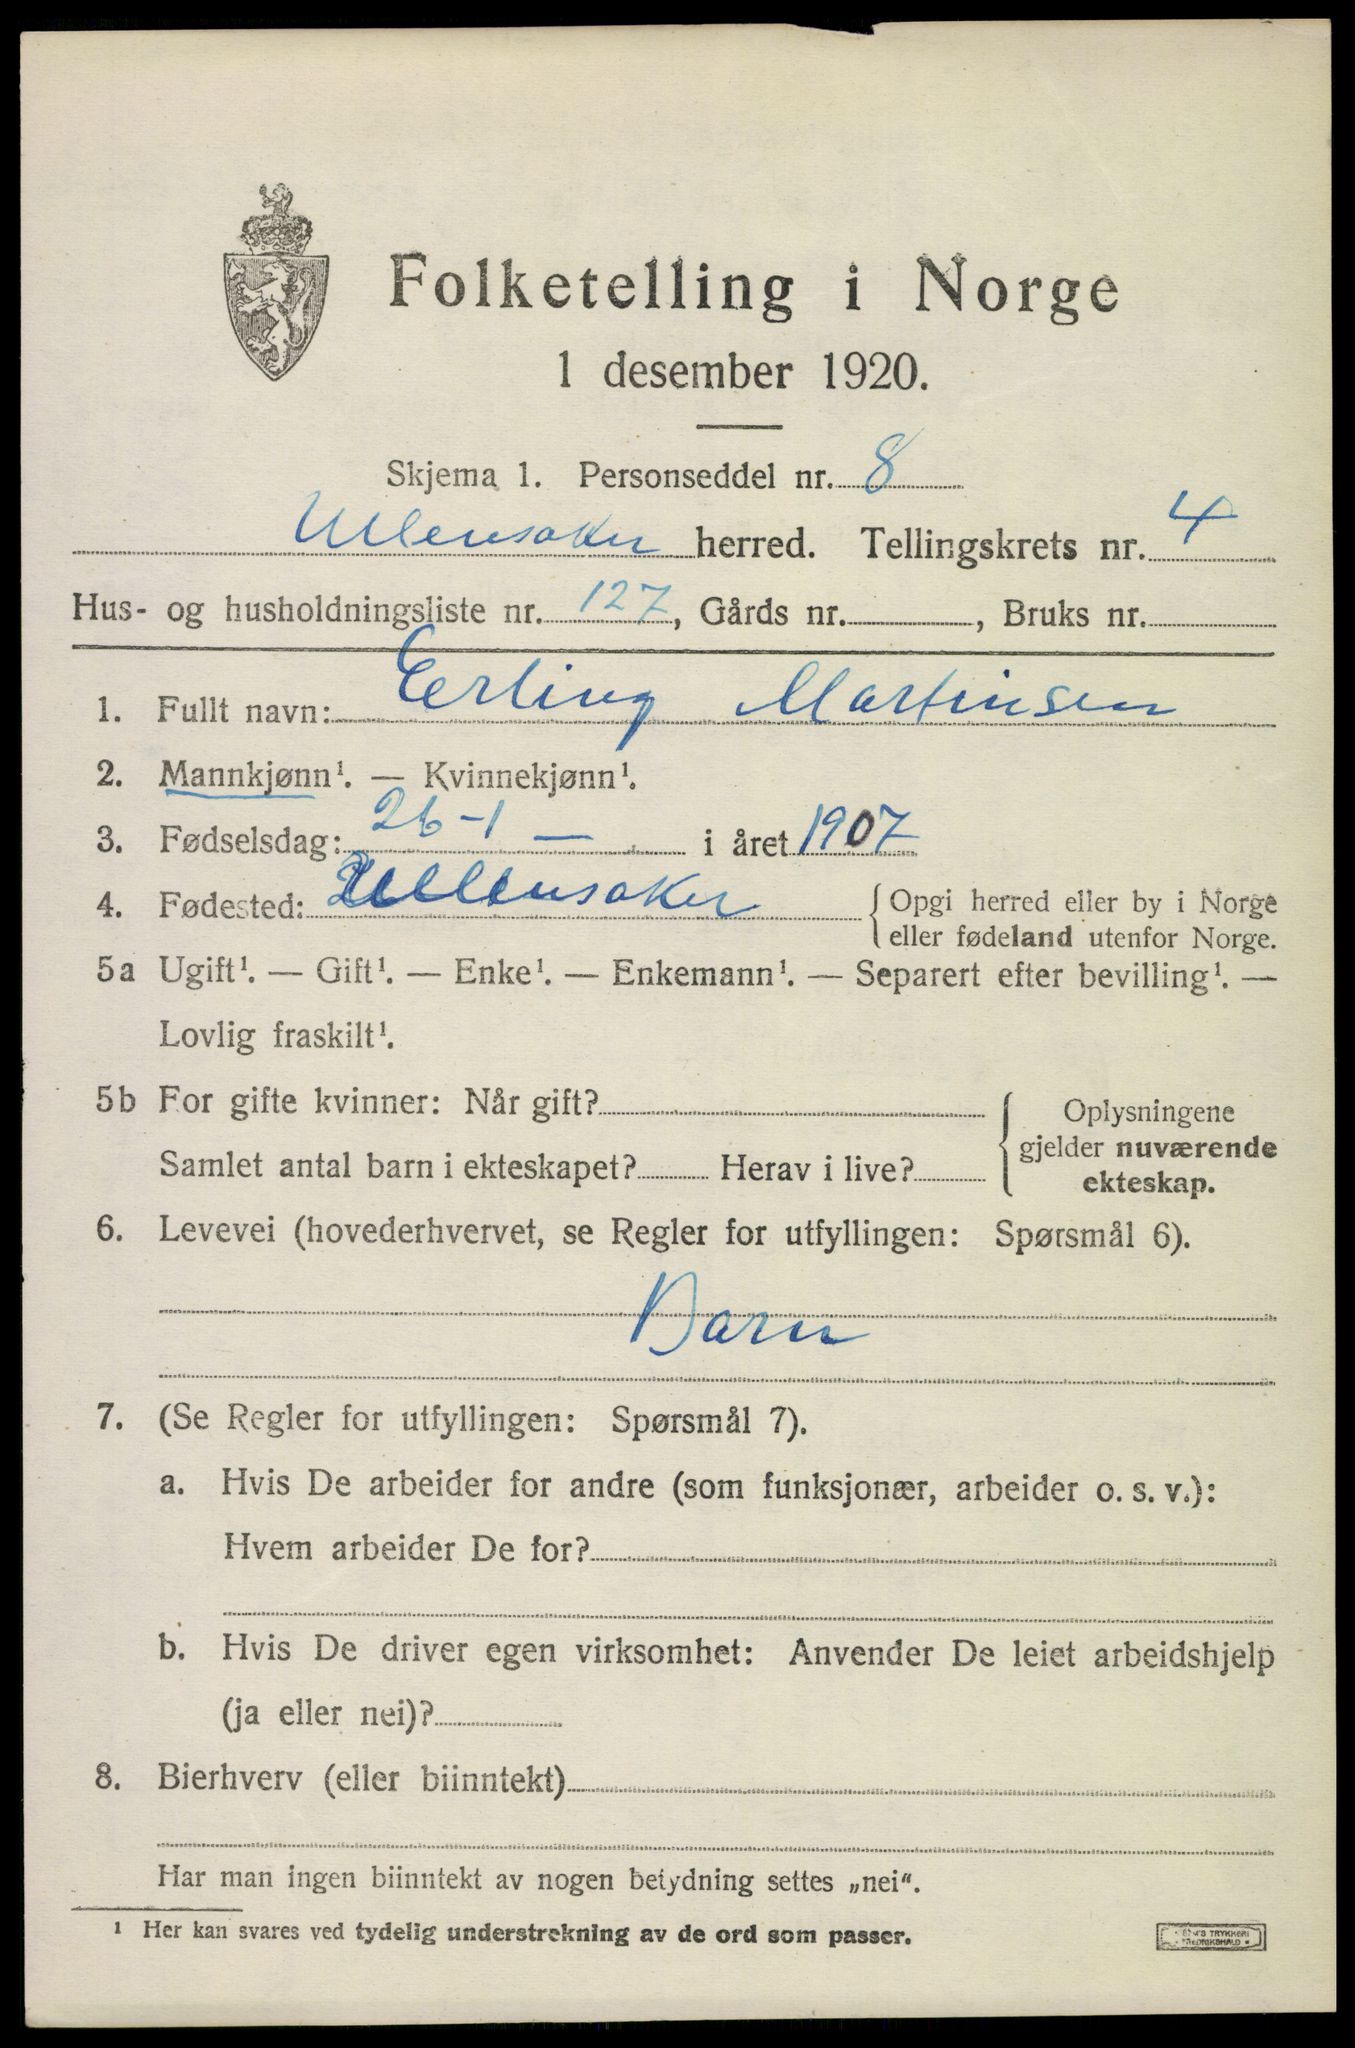 Folketelling i Norge
1 desember 1920.
Skjema 1. Personseddel nr. 8
Ullensaker herred. Tellingskrets nr. 4
Hus- og husholdningsliste nr. 127, Gårds nr. , Bruks nr.
1. Fullt navn: Erling Martinsen
2. Mannkjønn¹. — Kvinnekjønn¹.
3. Fødselsdag: 26-1 — i året 1907
4. Fødested: Ullensaker { Opgi herred eller by i Norge
eller fødeland utenfor Norge.
5a Ugift¹. — Gift¹. — Enke¹. — Enkemann¹. — Separert efter bevilling¹. —
Lovlig fraskilt¹.
5b For gifte kvinner: Når gift?
Samlet antal barn i ekteskapet? Herav i live?
Oplysningene
gjelder nuværende
ekteskap.
6. Levevei (hovederhvervet, se Regler for utfyllingen: Spørsmål 6).
Barn
7. (Se Regler for utfyllingen: Spørsmål 7).
a. Hvis De arbeider for andre (som funksjonær, arbeider o. s. v.):
Hvem arbeider De for?
b. Hvis De driver egen virksomhet: Anvender De leiet arbeidshjelp
(ja eller nei)?
8. Bierhverv (eller biinntekt)
Har man ingen biinntekt av nogen betydning settes „nei".
¹ Her kan svares ved tydelig understrekning av de ord som passer.
TRYKKERI